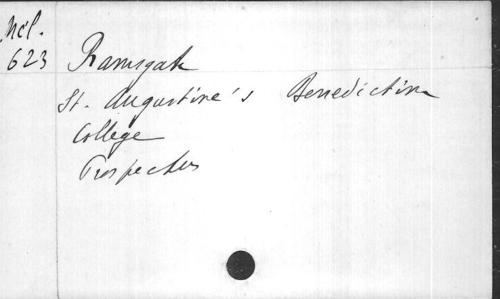 Mél.
623
Ramsgate
St. Augustine's Benedictine
College
Prospectus